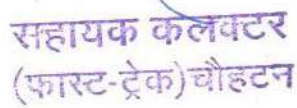 सहायक कलेक्टर
(फास्ट-ट्रेक)चौहटन